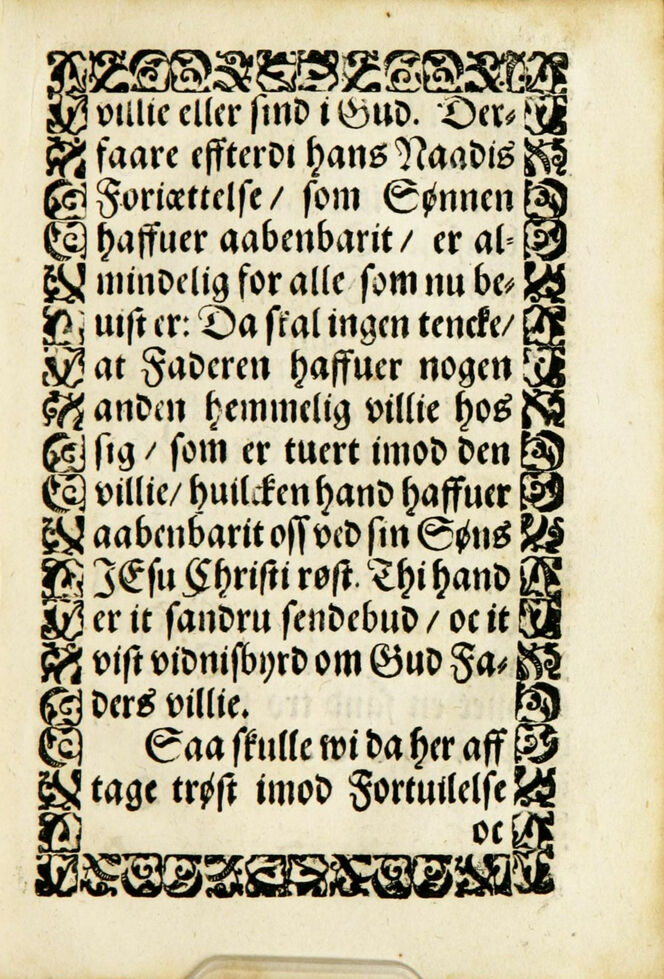 villie eller sind i Gud. Der⸗
faare effterdi hans Naadis
Foriættelse / som Sønnen
haffuer aabenbarit / er al⸗
mindelig for alle som nu be⸗
uist er: Da skal ingen tencke/
at Faderen haffuer nogen
anden hemmelig villie hos
sig / som er tuert imod den
villie/ huilcken hand haffuer
aabenbarit oss ved sin Søns
JEsu Christi røst. Thi hand
er it sandru sendebud / oc it
vist vidnisbyrd om Gud Fa⸗
ders villie.
Saa skulle wi da her aff
tage trøst imod Fortuilelse
oc